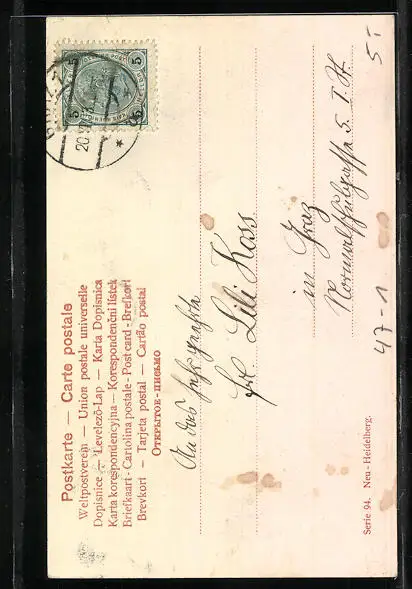 Postkarte — Carte postale
Weltpostverein — Union postale universelle
Dopisnice — Levelező-Lap — Karta Dopisnica
Karta korespondencyjna — Korespondenční lístek
Briefkaart - Cartolina postale - Post card - Brefkort
Brevkort — Tarjeta postal — Cartão postal
ОТКРЫТОЕ - ПИСЬМО
5 5
GRAZ
20
An das
Frl. Lili Kass
in Graz
Normalschulgasse 5. I. St.
5-
47-1
Serie 94. Neu-Heidelberg.